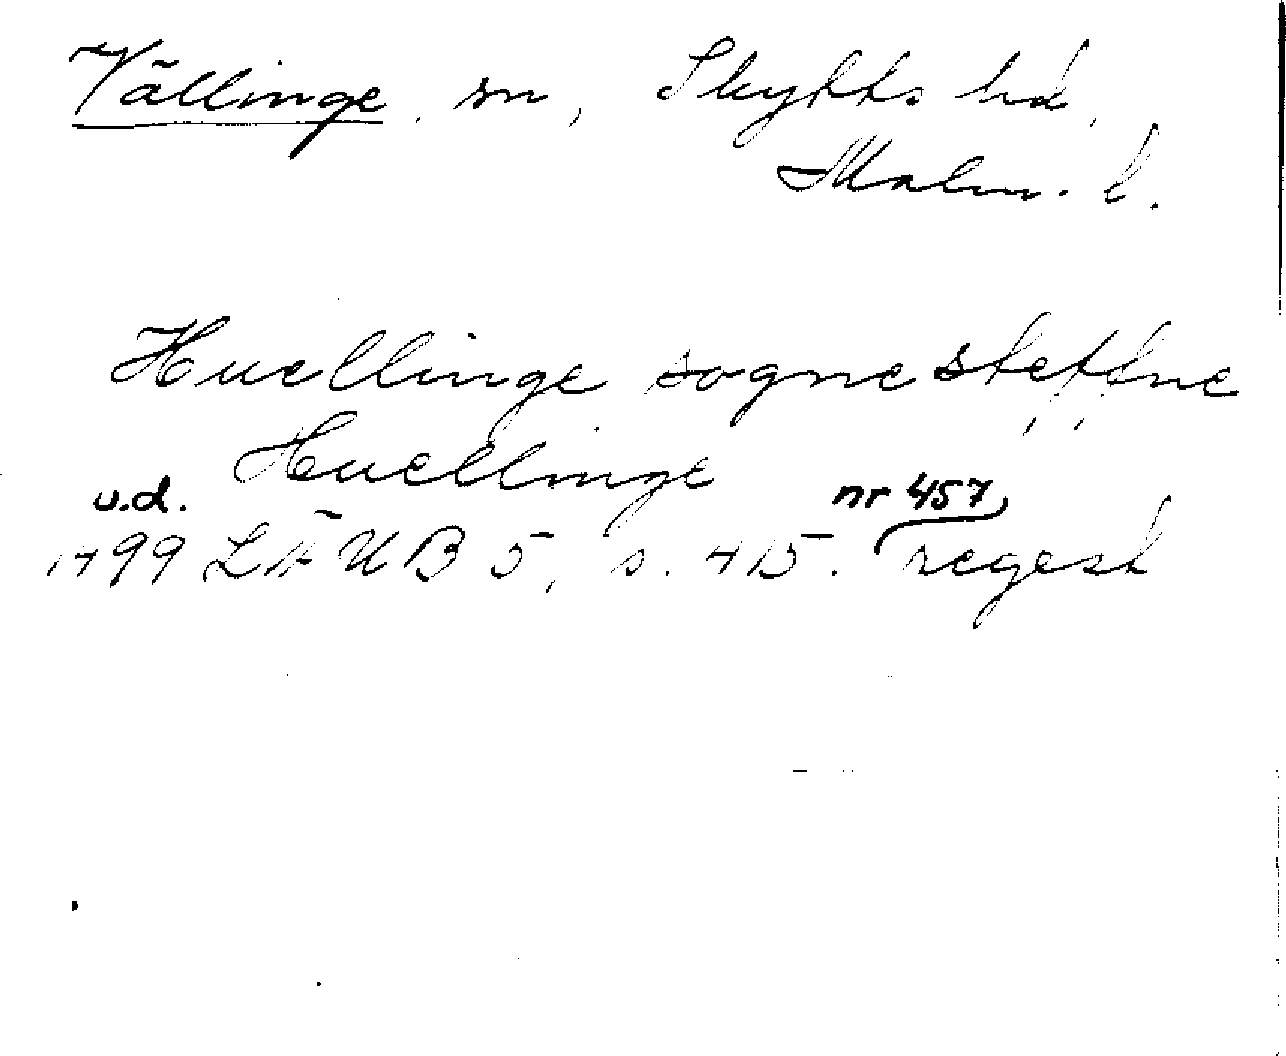 Vällinge sn, Skytts hd,
Malm. l.
Huellinge sogne steffne
Huellinge
u.d. nr 457
1499 LÄUB 5, s. 415. regest